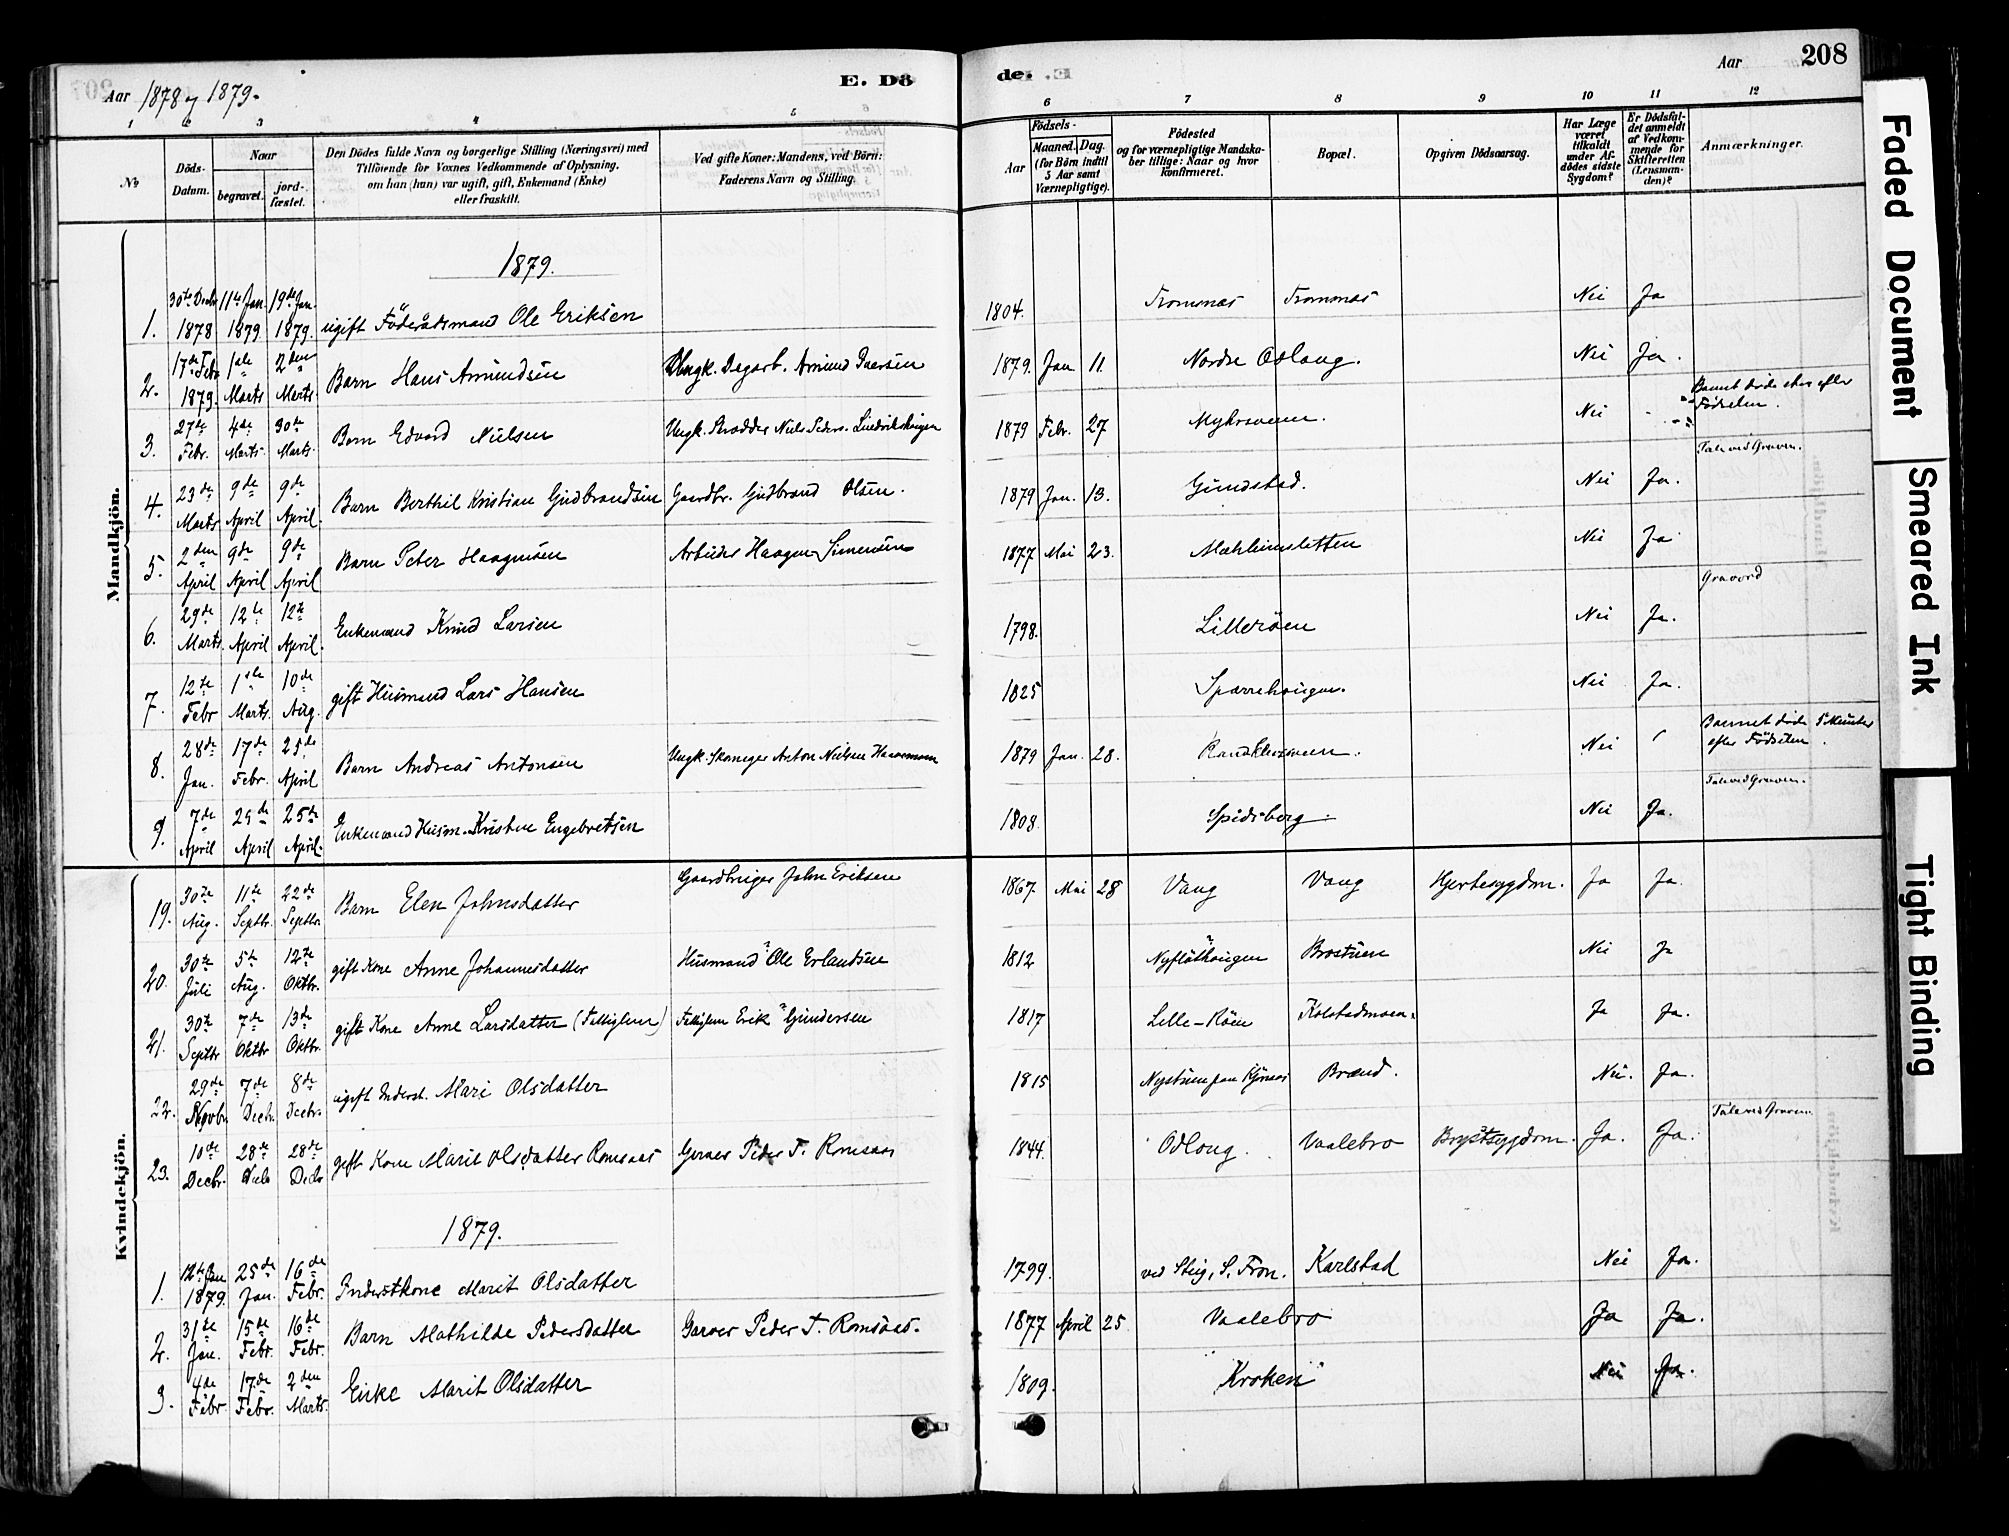 Aar 1878 og 1879.
E. Dö
de. E
Aar 208
1 2 3 4 5 6 7 8 9 10 11 12
No
Döds-Datum.
Naar
begravet.
jord-fæstet.
Den Dödes fulde Navn og borgerlige Stilling (Næringsvei) med
Tilföiende for Voxnes Vedkommende af Oplysning,
om han (hun) var ugift, gift, Enkemand (Enke)
eller fraskilt.
Ved gifte Koner: Mandens, ved Börn:
Faderens Navn og Stilling.
Födsels-
Aar
Maaned.
Dag.
(for Börn indtil
5 Aar samt
Værnepligtige).
Födested
og for værnepligtige Mandska-
ber tillige: Naar og hvor
konfirmeret.
Bopæl.
Opgiven Dödsaarsag.
Har Læge
været
tilkaldt
under Af-
dödes sidste
Sygdom?
Er Dödsfal-
det anmeldt
af Vedkom-
mende for
Skifteretten
(Lensman-
den)?
Anmærkninger.
Mandkjön.
1879.
1. 30te Decbr 1878 11te Jan. 1879 19de Jan. 1879. ugift Föderaadsmand Ole Eriksen 1804. Tromnæs Tromnæs Nei Ja
2. 17de Febr 1879. 1ste Marts 2den Marts Barn Hans Amundsen Ungk. Degarb. Amund Iversen 1879. Jan 11. Nordre Odlong. Nei Ja.
3. 27de Febr. 4de Marts 30te Marts. Barn Edvard Nielsen Ungk. Skrædder Niels Peders. 1879 Febr. 27 Nei Barnet döde strax efter Födselen.
4. 23de Marts 9de April 9de April. Barn Berthil Kristian Gudbrandsen Gaardbr. Gudbrand Olsen. 1879 Jan. 13. Gundstad. Nei Ja. Tale ved Graven.
5. 2den April 9de April 9de April Barn Peter Haagensen Arbeider Haagen Simensen 1877 Mai 23. Mæhlumsletten Nei Ja
6. 29de Marts. 12te April 12te April. Enkemand Knud Larsen 1798. Lilleröen Nei Ja. Gravord
7. 12te Febr 1ste Marts. 10de Aug. gift Husmand Lars Hansen 1825 Sparrehougen. Nei Ja.
8. 28de Jan. 17de Febr. 25de April Barn Andreas Antonsen Ungk. Skomager Anton Nielsen 1879 Jan. 28. Nei Barnet döde 5 Minuter efter Födselen.
9. 7de April 25de April 25de April. Enkemand Husm. Kristen Engebretsen 1808. Spidsberg. Nei Ja. Tale ved Graven.
Kvindekjön.
19. 30te Aug. 11te Septbr. 22de Septbr. Barn Elen Johnsdatter Gaardbruger John Eriksen 1867. Mai 28 Vang Vang Hjertesygdom. Ja Ja.
20. 30te Juli 5te Aug. 12te Oktbr. gift Kone Anne Johannesdatter Husmand Ole Erlandsen 1812 Nyflöthougen Brostuen Nei Ja
21. 30te Septbr 7de Oktbr 13de Oktbr. gift Kone Anne Larsdatter (Fattiglem) Fattiglem Erik Gundersen 1817 Lille-Röen Kolstadmoen. Ja Ja.
22. 29de Novbr. 7de Decbr. 8de Decbr. ugift Inderst. Mari Olsdatter 1815 Brænd. Nei. Ja.
23. 10de Decbr. 28de Decb 28de Decb gift Kone Marit Olsdatter Romsaas Garver Peder T. Romsaas 1844. Odlong. Vaalebro Brystsygdom. Ja. Ja. Tale ved Graven.
1879.
1. 12te Jan 1879. 25de Jan. 16de Febr. Inderstkone Marit Olsdatter 1799. ved Stig, S. Fron. Karlstad Nei Ja.
2. 31te Jan. 15de Febr. 16de Febr. Barn Mathilde Pedersdatter Garver Peder T. Romsaas. 1877 April 25. Vaalebro Ja Ja.
3. 4de Febr. 17de Febr. 2den Marts. Enke Marit Olsdatter 1809. "Kroken" Nei Ja.
Faded Document
Smeared Ink
Tight Binding